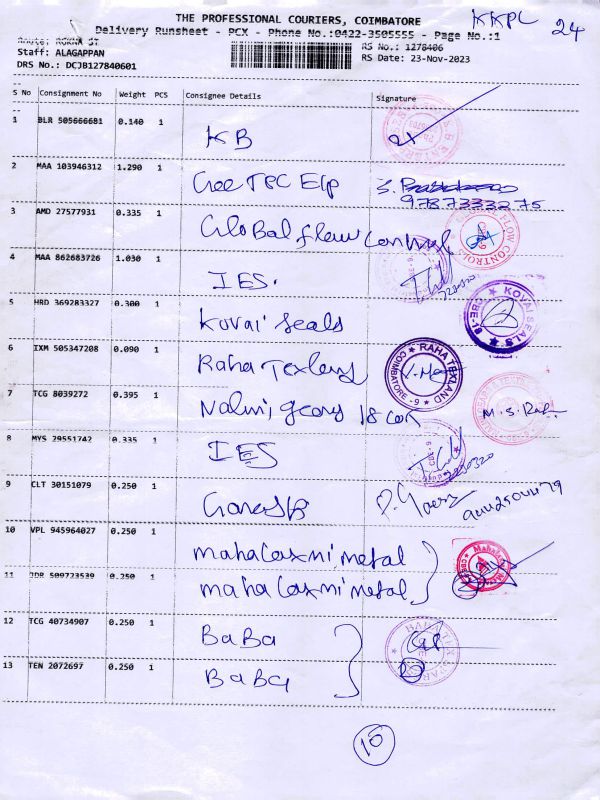 THE PROFESSIONAL COURIERS, COIMBATORE
KKPL 24
Delivery Runsheet - PCX - Phone No.:0422-3505555 - Page No.:1
Staff: ALAGAPPAN
RS No.: 1278406
DRS No.: DCJB127840601
RS Date: 23-Nov-2023
S No Consignment No Weight PCS Consignee Details Signature
1 BLR 505666681 0.140 1 KB
2 MAA 103946312 1.290 1
9787333275
3 AMD 27577931 0.335 1 Global flow control
FLOW CONTROL
4 MAA 862683726 1.030 1 IES.
5 HRD 369283327 0.300 1 Kovai Seals
KOVAI SEALS
6 IXM 505347208 0.090 1 Raha Texland
RAHA TEXLAND COIMBATORE - 9
7 TCG 8039272 0.395 1
8 MYS 29551742 0.335 1 IES
9 CLT 30151079 0.250 1
10 VPL 945964027 0.250 1 mahalaxmi metal
11 JDR 509723539 0.250 1 maha laxmi metal
12 TCG 40734907 0.250 1 BaBa
13 TEN 2072697 0.250 1 BaBa